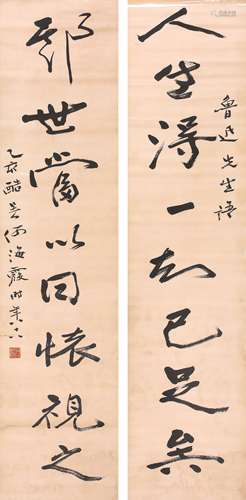 魯迅先生語
人生得一知己足矣
斯世當以同懷視之
乙亥酷暑何海霞時年八八